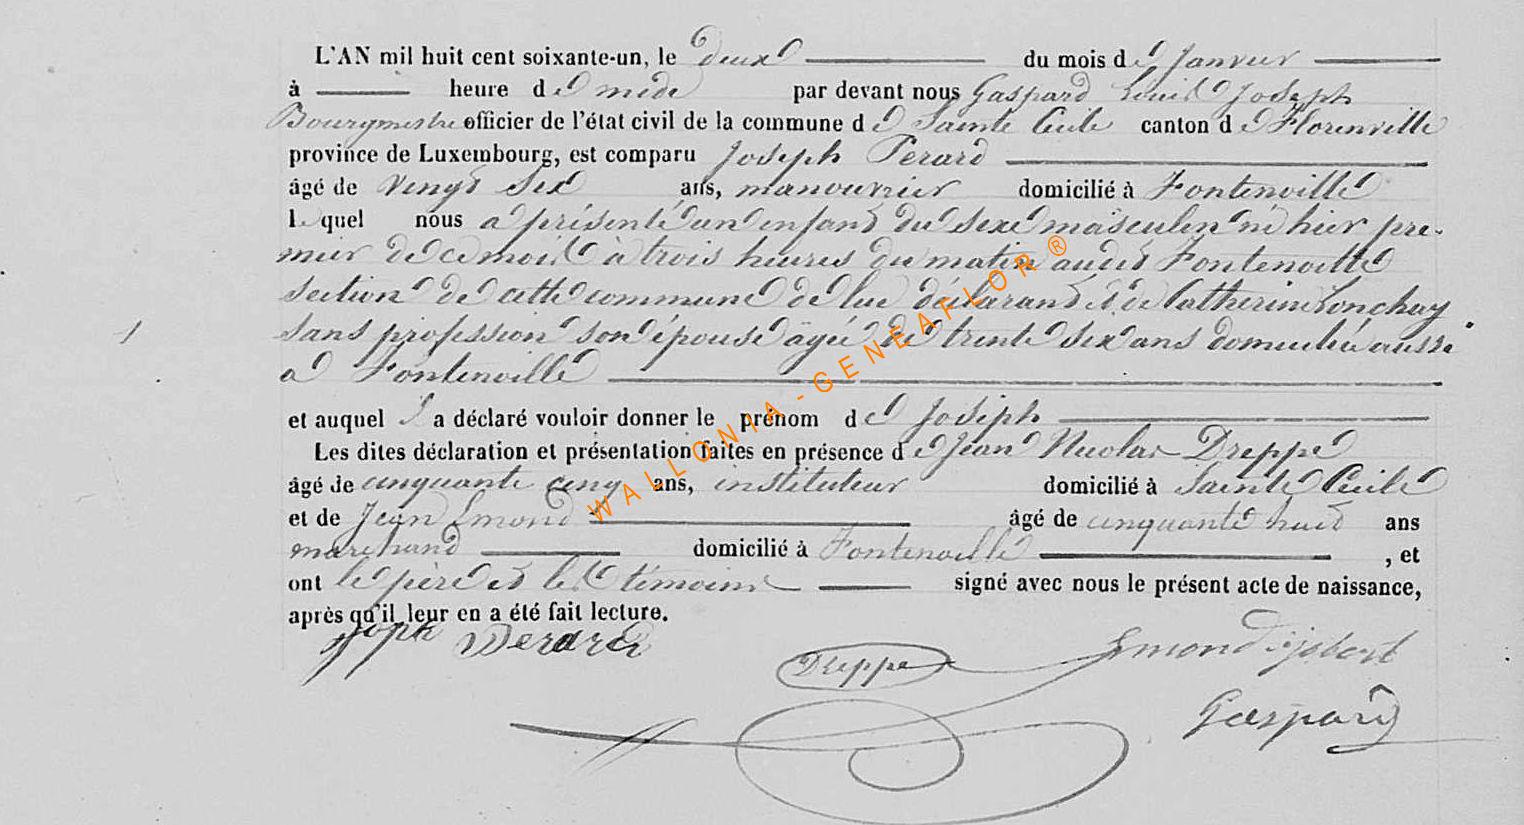 L'AN mil huit cent soixante-un, le deux du mois de Janvier
à heure de midi par devant nous Gaspard Louis Joseph
Bourgmestre officier de l'état civil de la commune de Sainte Cécile canton de Florenville
province de Luxembourg, est comparu Joseph Perard
âgé de vingt six ans, manouvrier domicilié à Fontenoille
lequel nous a présenté un enfant du sexe masculin né hier pre-
mier de ce mois à trois heures du matin audit Fontenoille
section de cette commune de lui déclarant et de Catherine Lonchay
sans profession son épouse âgée de trente six ans domiciliée aussi
a Fontenoille
1
et auquel il a déclaré vouloir donner le prénom de Joseph
Les dites déclaration et présentation faites en présence de Jean Nicolas Dreppe
âgé de cinquante cinq ans, instituteur domicilié à Sainte Cécile
et de Jean Emond âgé de cinquante huit ans
marchand domicilié à Fontenoille , et
ont le père et les témoins signé avec nous le présent acte de naissance,
après qu'il leur en a été fait lecture.
Perard
Dreppe Emond
Gaspard
WALLONIA-GENEAFLOR®